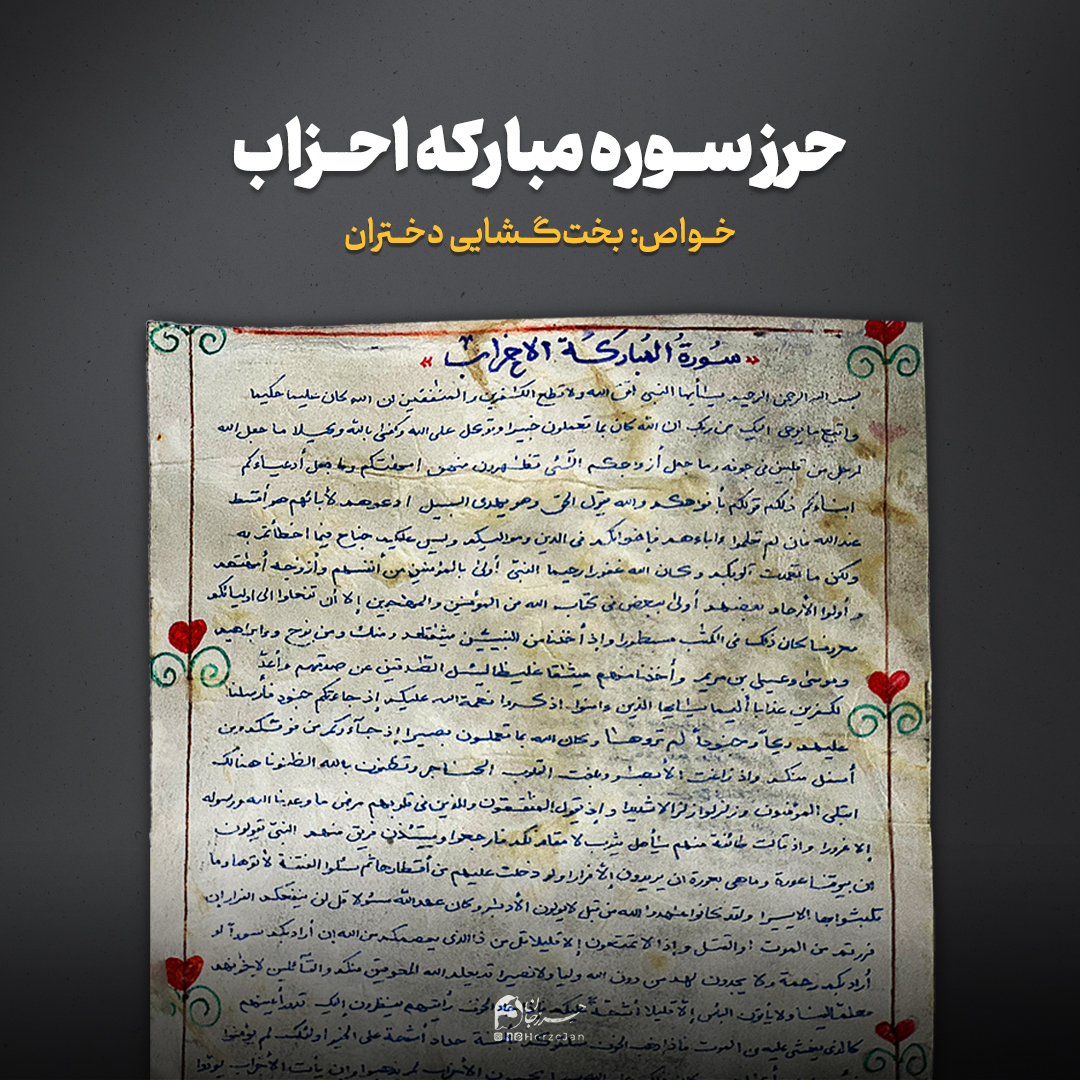 حرز سوره مبارکه احزاب
خواص: بخت‌گشایی دختران
«سورة المباركة الاحزاب»
بسم الله الرحمن الرحيم يٰأيها النبي اتق الله ولا تطع الكٰفرين والمنٰفقين إن الله كان عليما حكيما
واتبع ما يوحى اليك من ربك ان الله كان بما تعملون خبيرا وتوكل على الله وكفى بالله وكيلا ما جعل الله
لرجل من قلبين في جوفه وما جعل أزوٰجكم الّٰئي تظٰهرون منهن امهٰتكم وما جعل أدعياءكم
ابناءكم ذٰلكم قولكم بأفوٰهكم والله يقول الحق وهو يهدى السبيل ادعوهم لأبائهم هو أقسط
عند الله فان لم تعلموا ءاباءهم فإخوانكم في الدين ومواليكم وليس عليكم جناح فيما اخطأتم به
ولكن ما تعمدت قلوبكم وكان الله غفورا رحيما النبي أولى بالمؤمنين من أنفسهم وأزوٰجه أمهٰتهم
و أولوا الأرحام بعضهم أولى ببعض في كتاب الله من المؤمنين والمهٰجرين إلا أن تفعلوا الى اوليائكم
معروفا كان ذلك في الكتٰب مسطورا وإذ أخذنا من النبيين ميثٰقهم ومنك ومن نوح وإبراهيم
وموسى وعيسى بن مريم وأخذنا منهم ميثٰقا غليظا ليسئل الصٰدقين عن صدقهم وأعدّ
لكٰفرين عذابا أليما يٰايها الذين ءامنوا اذكروا نعمة الله عليكم إذ جاءتكم جنود فأرسلنا
عليهم ريحاً وجنوداً لم تروها وكان الله بما تعملون بصيرا إذ جآءوكم من فوقكم ومن
أسفل منكم وإذ زاغت الأبصٰر وبلغت القلوب الحناجر وتظنون بالله الظنونا هنالك
ابتلى المؤمنون وزلزلوا زلزالا شديدا وإذ يقول المنٰفقون والذين في قلوبهم مرض ما وعدنا الله ورسوله
إلا غرورا وإذ قالت طائفة منهم يٰأهل يثرب لا مقام لكم فارجعوا ويستئذن فريق منهم النبي يقولون
ان بيوتنا عورة وما هي بعورة ان يريدون إلا فرارا ولو دخلت عليهم من أقطارها ثم سئلوا الفتنة لأتوها وما
تلبثوا بها الا يسيرا ولقد كانوا عٰهدوا الله من قبل لا يولون الأدبٰر وكان عهد الله مسئولا قل لن ينفعكم الفرار إن
فررتم من الموت أو القتل وإذا لا تمتعون إلا قليلا قل من ذا الذي يعصمكم من الله إن أراد بكم سوءاً أو
أراد بكم رحمة ولا يجدون لهم من دون الله وليا ولا نصيرا قد يعلم الله المعوقين منكم والقآئلين لإخوٰنهم
هلم إلينا ولا يأتون البأس إلا قليلا أشحة عليكم فإذا جاء الخوف رأيتهم ينظرون إليك تدور أعينهم
كالذي يغشى عليه من الموت فإذا ذهب الخوف سلقوكم بألسنة حداد أشحة على الخير أولئك لم يؤمنوا
الأحزاب لم يذهبوا وإن يأت الأحزاب يودوا
حرزجان
HerzeJan